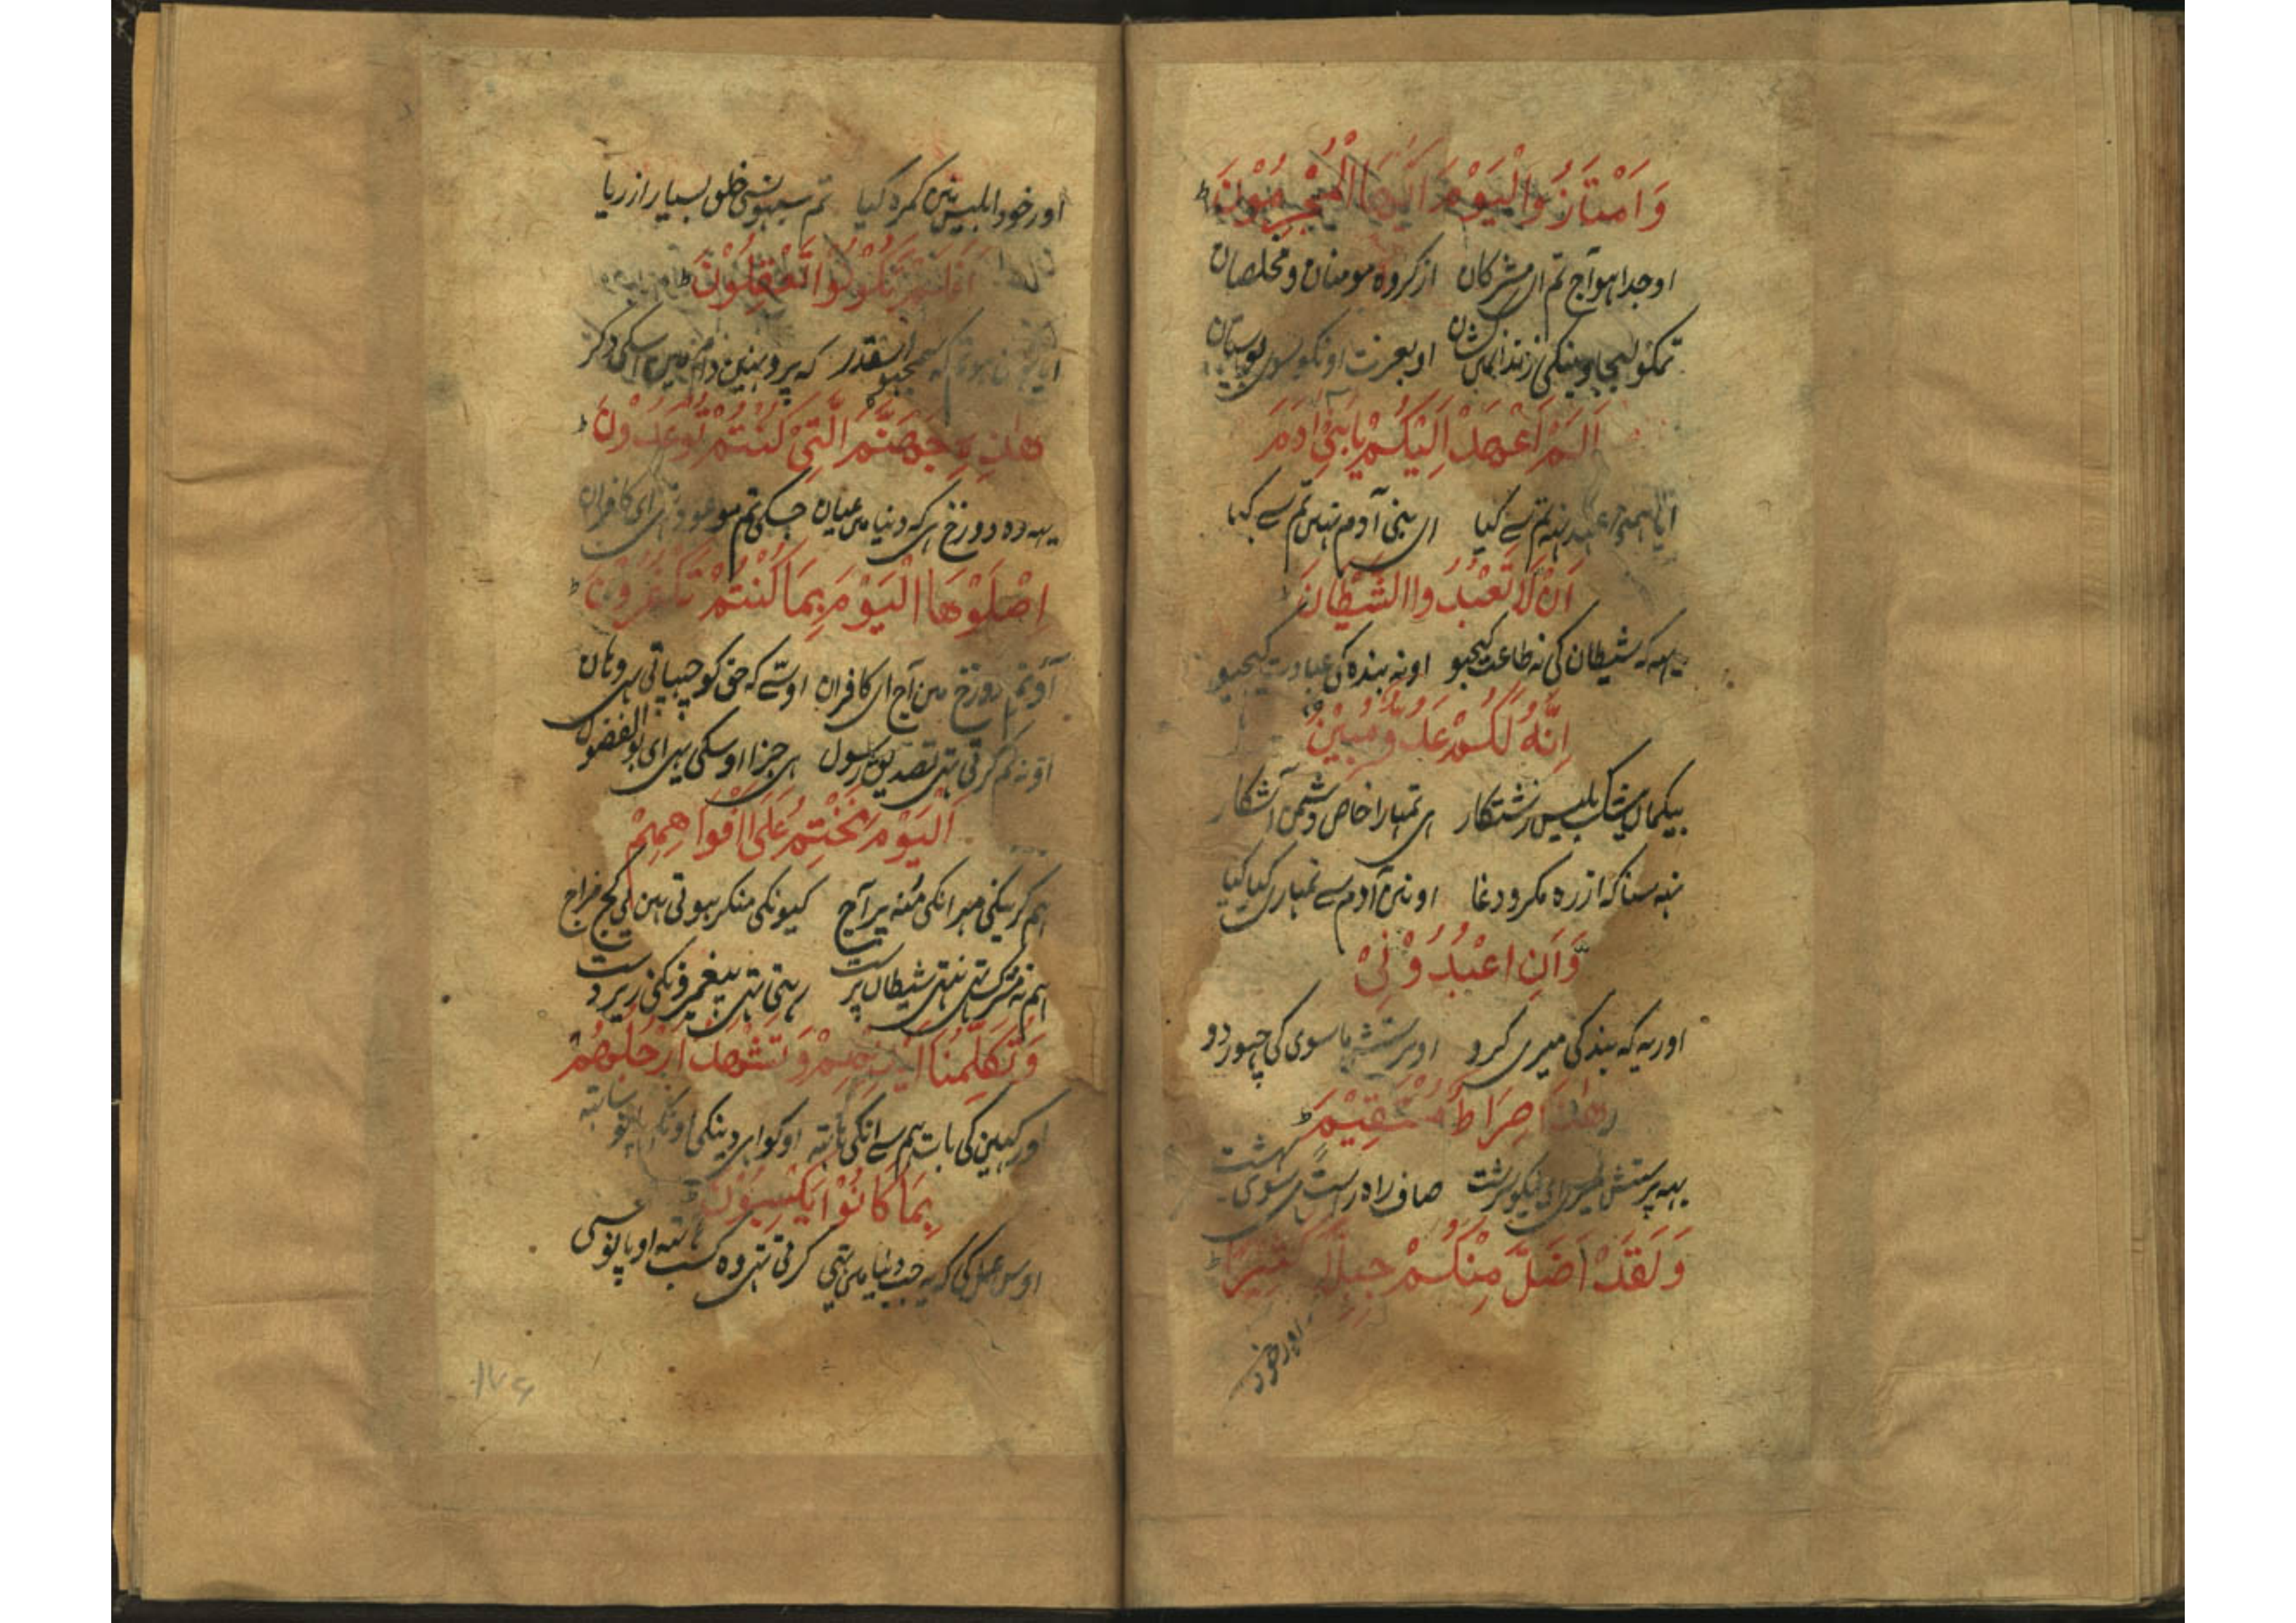 وَامْتَازُوا الْيَوْمَ اَيُّهَا الْمُجْرِمُوْنَ ط
او جدا ہو آج تم ای مشرکان از کروہ مومنان و مخلصان
تمکو لیجاوینکی زندان او بعزت اونکو سوی بوستان
اَلَمْ اَعْهَدْ اِلَيْكُمْ يَا بَنِيْ اٰدَمَ
آیا ہمنی عہد نہ تم سے کیا ای بنی آدم نہیں تم سے کہا
اَنْ لَّا تَعْبُدُوا الشَّيْطَانَ
یہہ کہ شیطان کی نہ طاعت کیجیو او نہ بندہ کی عبادت کیجیو
اِنَّهٗ لَكُمْ عَدُوٌّ مُّبِيْنٌ
بیکمان بیشک بلیس زشتکار ہی تمہارا خاص دشمن آشکار
نہ سنا کہ از رہ مکر و دغا اونی آدم سے تمہاری کیا کیا
وَّاَنِ اعْبُدُوْنِيْ
اور یہ کہ بندکی میری کرو او پرستش ماسوی کی چہور دو
هٰذَا صِرَاطٌ مُّسْتَقِيْمٌ ط
یہہ پرستش ای نیکو سرشت صاف راہ راست سوی بہشت
وَلَقَدْ اَضَلَّ مِنْكُمْ جِبِلًّا كَثِيْرًا ط
اور خود
اور خود ابلیس نین کمرہ کیا تم سبہونسی خلق بسیار از ریا
اَفَلَمْ تَكُوْنُوا تَعْقِلُوْنَ ط
سمجیو اسقدر کہ پرو نہین دام مین اسکی دکر
هٰذِهٖ جَهَنَّمُ الَّتِيْ كُنْتُمْ تُوْعَدُوْنَ ط
یہہ وہ دوزخ ہی کہ دنیا می عیان جسکی تم موعود تہی ای کافران
اِصْلَوْهَا الْيَوْمَ بِمَا كُنْتُمْ تَكْفُرُوْنَ ط
آؤ تم دوزخ مین آج ای کافران اوستے کہ حق کو چہپاتی تہی وہان
او نہ تم کرتی تہی تصدیق رسول ہی جزا اوسکی یہی ای بو الفضول
اَلْيَوْمَ نَخْتِمُ عَلٰى اَفْوَاهِهِمْ
ہم کرینکی مہر انکی مُنہ پر آج کیونکی منکر ہوتی ہین کج مزاج
ہم نہ مشرک تہی نتہی شیطان پرست رہتی تہی پیغمبرونکی زیر دست
وَتُكَلِّمُنَا اَيْدِيْهِمْ وَتَشْهَدُ اَرْجُلُهُمْ
اور کہین کی بات ہم سے انکی ہاتہہ او کواہی دینکی اونکی پانو ساتہہ
بِمَا كَانُوْا يَكْسِبُوْنَ ط
اوس عمل کی کہ یہ جب دنیا می تہی کرتی تہی وہ کسب ہاتہہ او پانو سی
۱۷۶